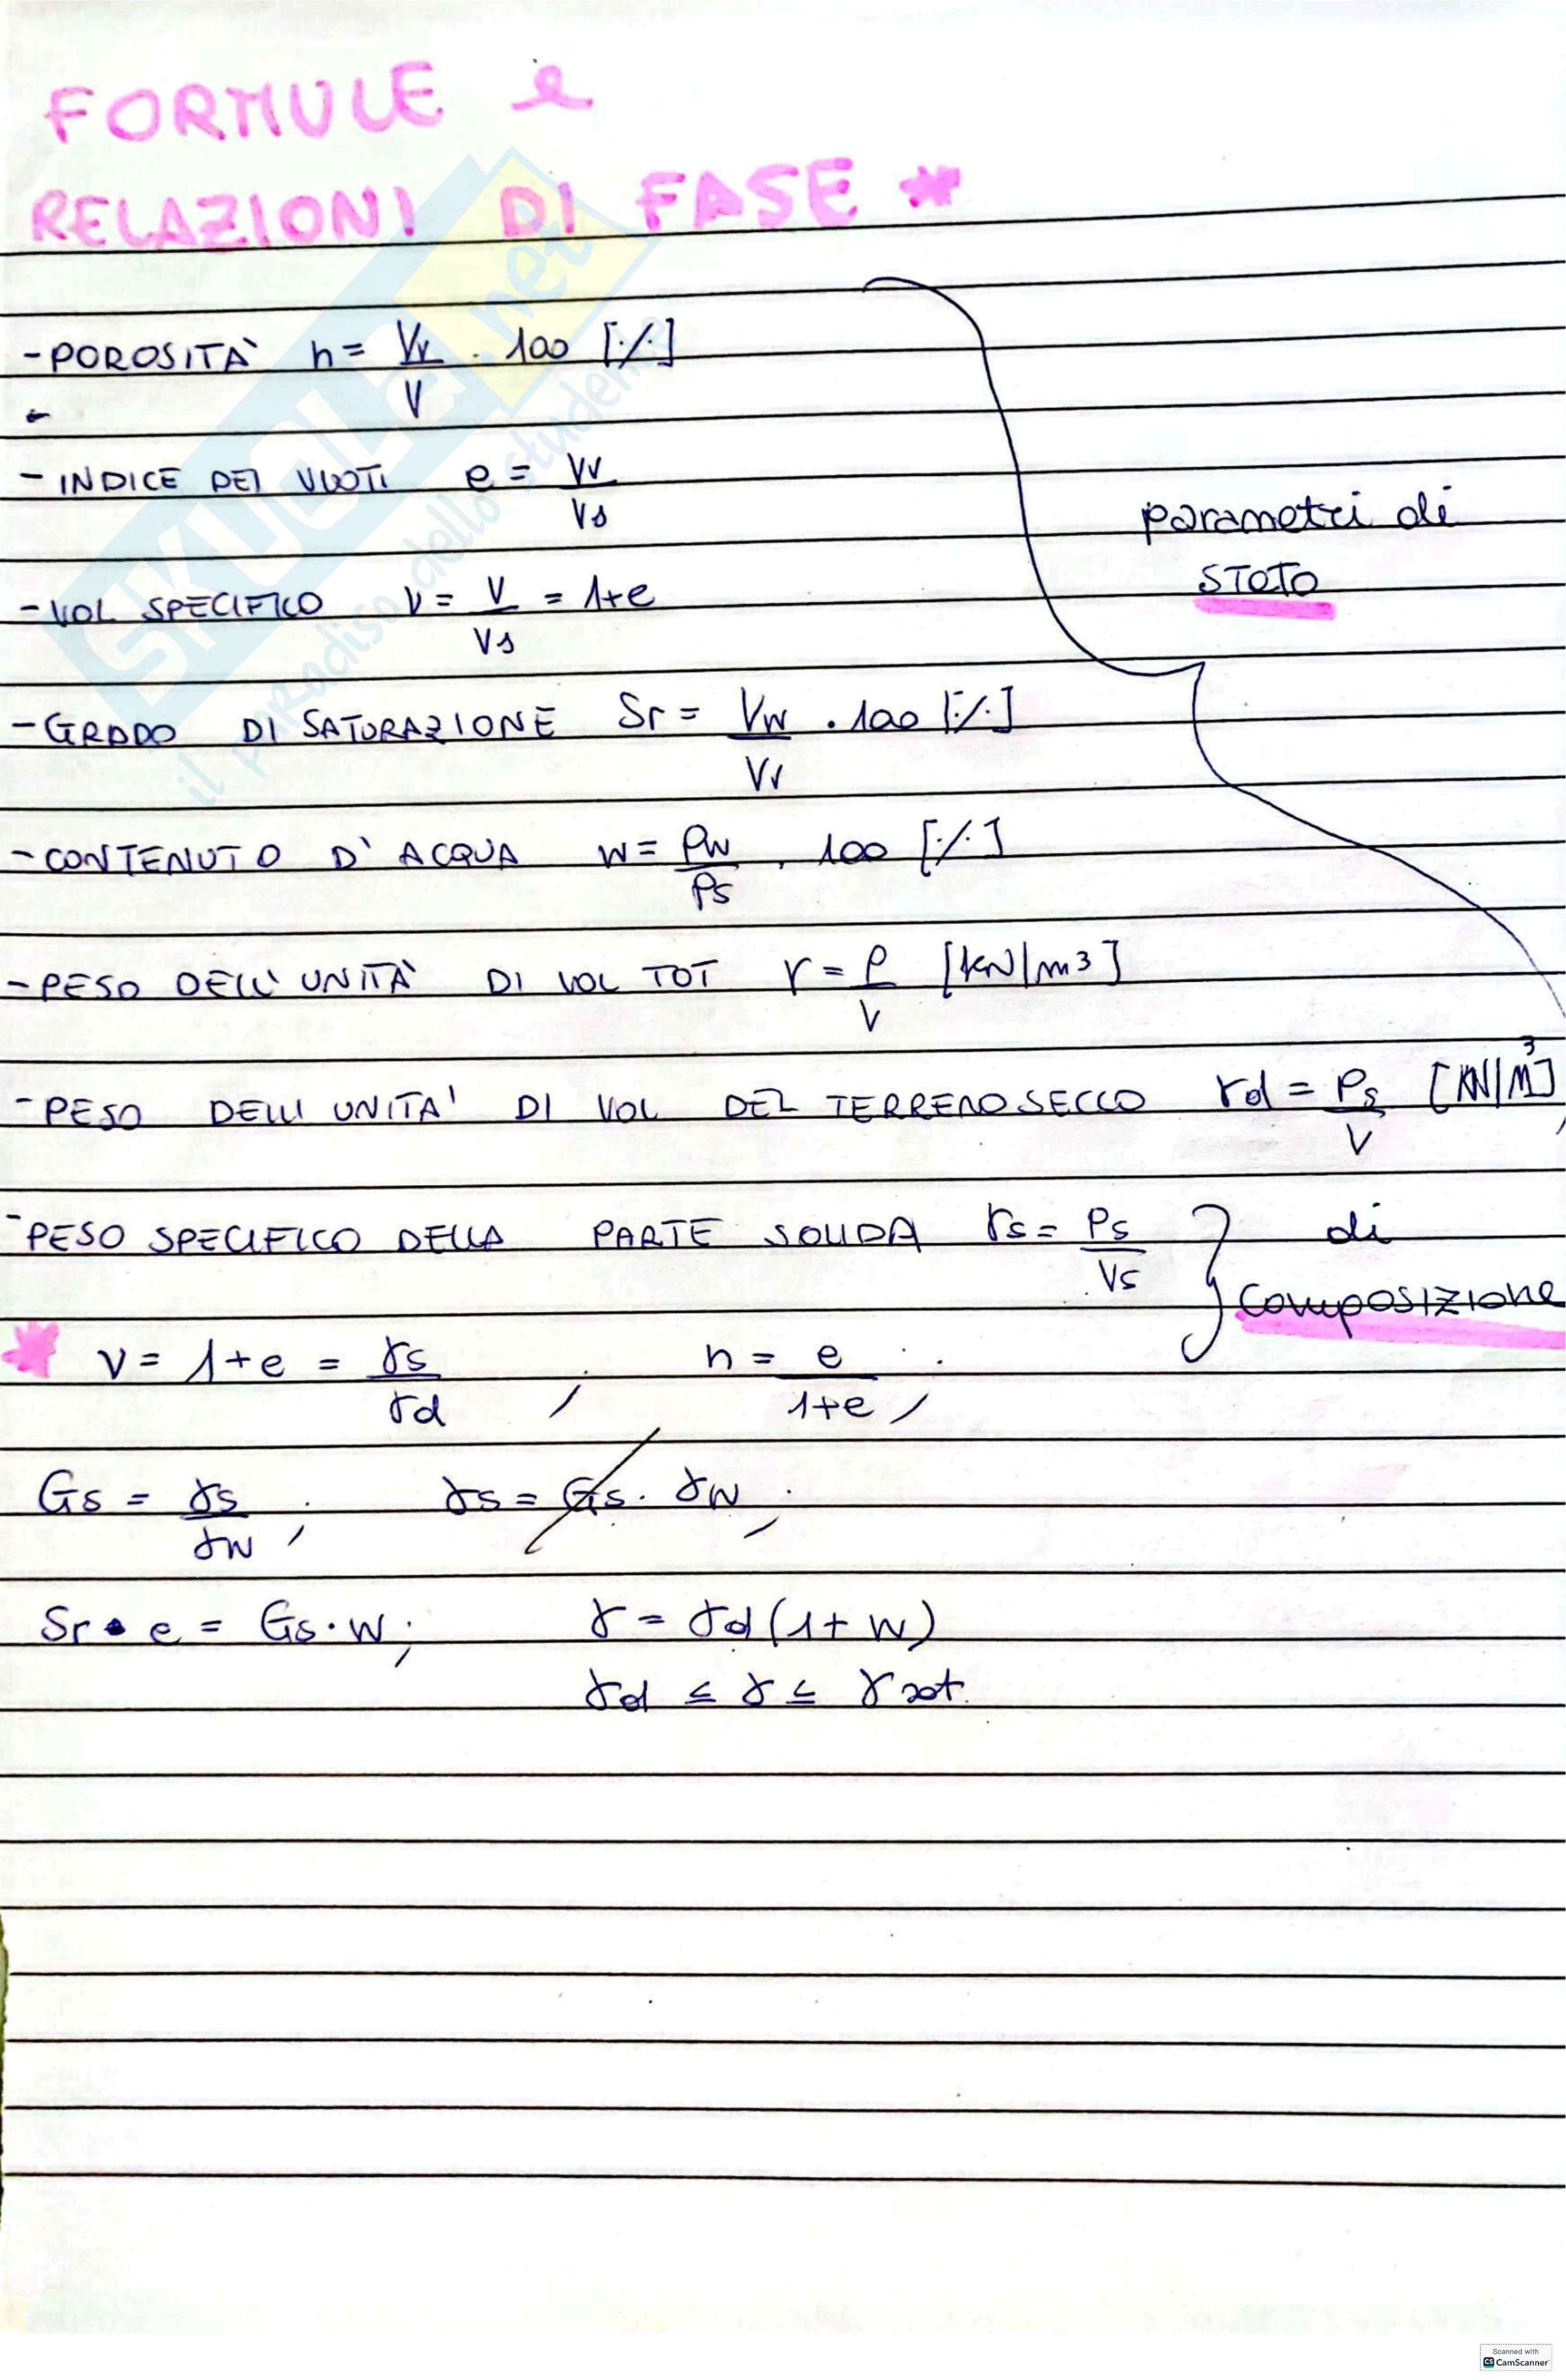 FORMULE e
RELAZIONI DI FASE *
- POROSITÀ n = Vv / V · 100 [%]
- INDICE DEI VUOTI e = Vv / Vs
- VOL SPECIFICO v = V / Vs = 1+e
parametri di
STATO
- GRADO DI SATURAZIONE Sr = Vw / Vv · 100 [%]
- CONTENUTO D' ACQUA w = Pw / Ps · 100 [%]
- PESO DELL' UNITÀ DI VOL TOT γ = P / V [kN/m³]
- PESO DELL' UNITA' DI VOL DEL TERRENO SECCO γd = Ps / V [KN/M³]
- PESO SPECIFICO DELLA PARTE SOLIDA γs = Ps / Vs } di
composizione
* v = 1+e = γs / γd ; n = e / 1+e ;
Gs = γs / γw ; γs = Gs · γw ;
Sr · e = Gs · w ; γ = γd (1+ w)
γd ≤ γ ≤ γ sat
SKUOLA.net
il paradiso dello studente
Scanned with
CS CamScanner